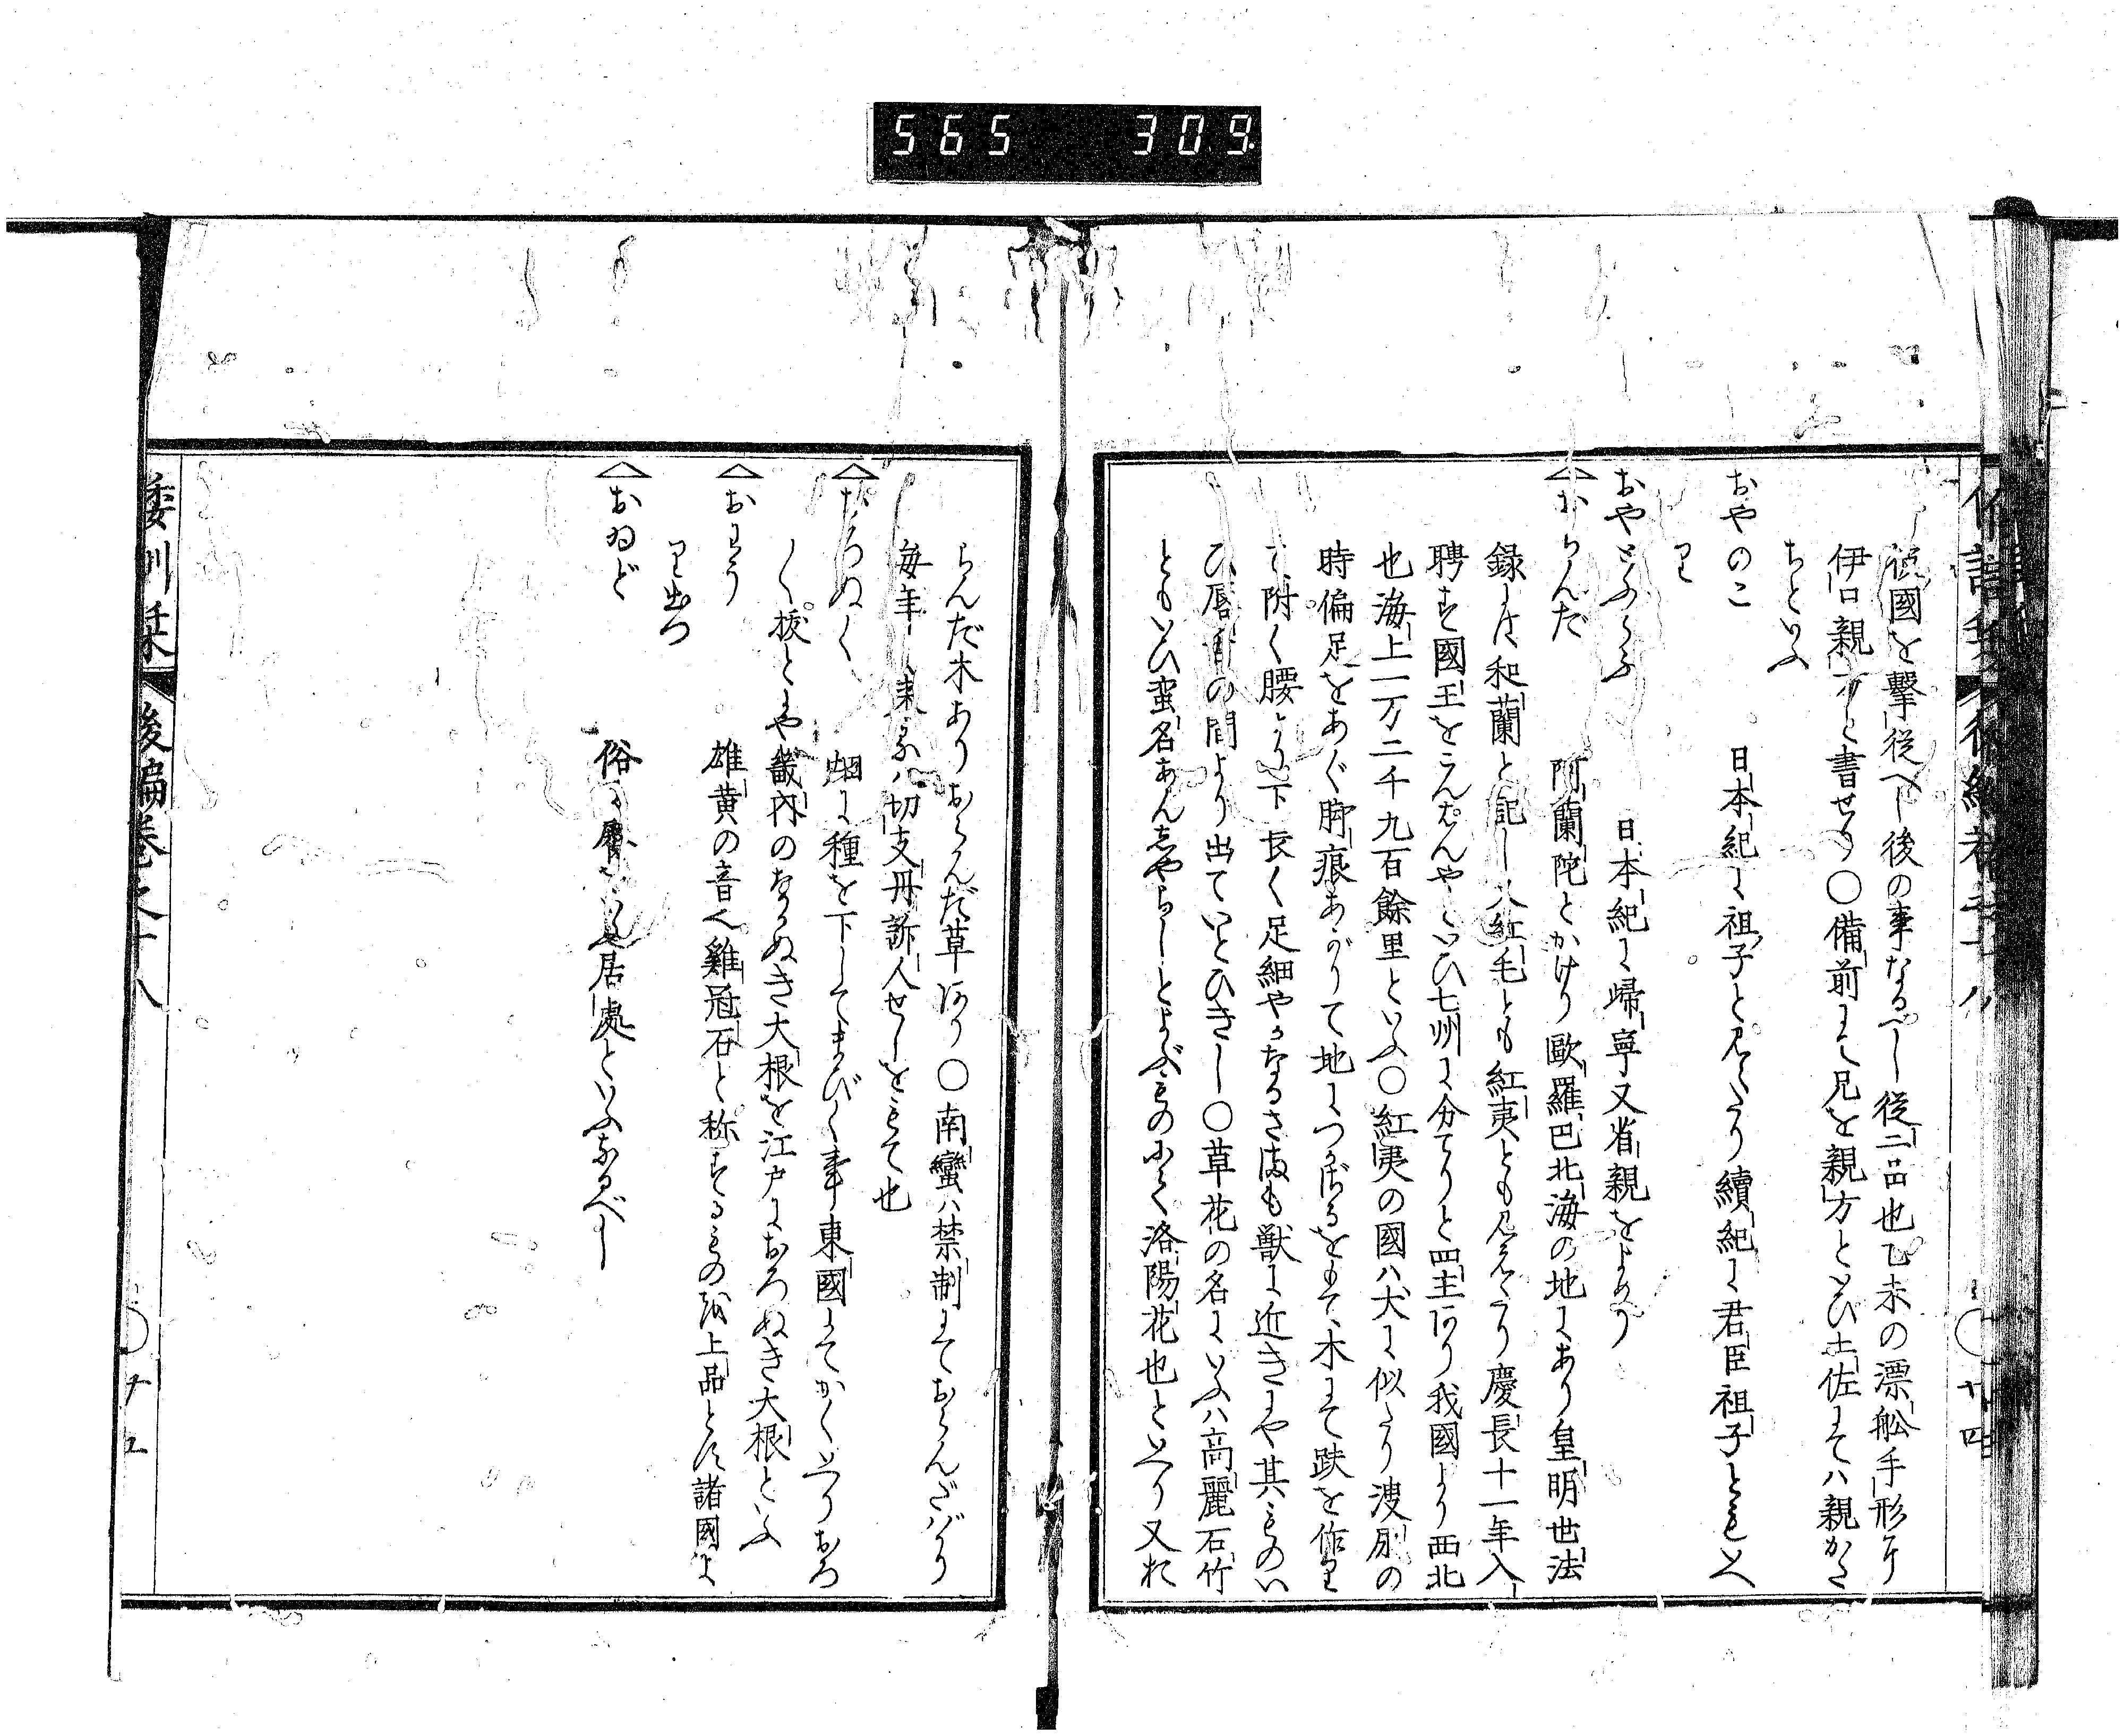 565 309
諸國を撃従へし後の事なるべし従二品也乙未の漂舩手形ニ
伊口親方と書せり〇備前にて兄を親方といひ土佐にてハ親かた
ちといふ
おやのこ 日本紀に祖子と見えたり續紀に君臣祖子ともいへ
り
おやとふらふ 日本紀に歸寧又省親をよめり
おらんだ 阿蘭陀とかけり歐羅巴北海の地にあり皇明世法
録には和蘭と記し大紅毛とも紅夷とも見えたり慶長十一年入
聘す國王をこんはんやといひ七州に分てりと四主あり我國より西北
也海上一万二千九百餘里といふ〇紅夷の國ハ犬に似たり溲尿の
時偏足をあぐ脚痕あがりて地につかざるをもて木にて趺を作り
て附く腰より下長く足細やかなるさまも獣に近きにや其ものい
ひ唇舌の間より出ていとひきし〇草花の名にいふハ高麗石竹
ともいひ蛮名あんしやらしとよぶもの小く洛陽花也といへり又お
らんだ木ありおらんだ草あり〇南蠻ハ禁制にておらんだバかり
毎年々来るハ切支丹訴人せしをもて也
おろぬく 畑に種を下してまびく事東國にてかくいへりおろ
く抜とにや畿内のなかぬき大根を江戸におろぬき大根といふ
おわう 雄黄の音也雞冠石と称するもの誠上品とす諸國よ
り出づ
おゐど 俗に臀をいふ居處といふなるべし
倭訓栞 後編巻之十八 〇十五